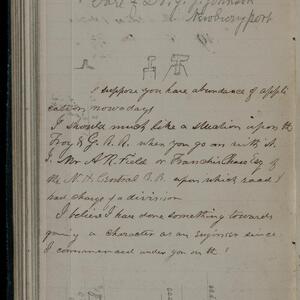 Care of Dr. G. J. Johnson
Newburyport
I suppose you have abundance of appli
cations nowadays
I should much like a situation upon the
Troy & G. R.R. when you go on with it.
I. Mr A. R. Field or Franklin Chase Esq of
the N.H. Central R.R. upon which road I
had charge of a division
I believe I have done something towards
gaining a character as an Engineer since
I commenced under you on the